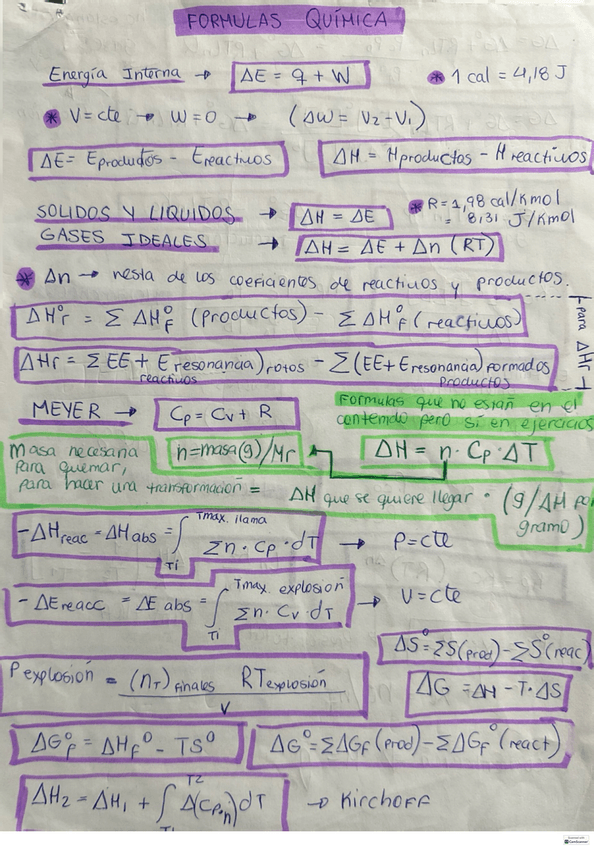 FORMULAS QUÍMICA
Energía Interna → ΔE = q + W * 1 cal = 4,18 J
* V = cte → W = 0 → (ΔW = V₂ - V₁)
ΔE = Eproductos - Ereactivos ΔH = Hproductos - Hreactivos
SOLIDOS Y LIQUIDOS → ΔH = ΔE * R = 1,98 cal/Kmol
= 8,31 J/Kmol
GASES IDEALES → ΔH = ΔE + Δn (RT)
* Δn → resta de los coeficientes de reactivos y productos.
ΔH°r = Σ ΔH°F (productos) - Σ ΔH°F (reactivos)
para ΔHr
ΔHr = Σ EE + E resonancia) rotos - Σ (EE + E resonancia) formados
reactivos productos
MEYER → Cp = Cv + R
Formulas que no están en el
contenido pero sí en ejercicios
Masa necesaria
para quemar,
para hacer una transformación =
n = masa(g)/Mr ΔH = n · Cp · ΔT
ΔH que se quiere llegar · (g/ΔH por
gramo)
-ΔHreac = ΔHabs = ∫ Tmax. llama Ti Σn · Cp · dT → P = cte
-ΔEreacc = ΔE abs = ∫ Tmax. explosión Ti Σn · Cv · dT → V = cte
ΔS° = ΣS(prod) - ΣS°(reac)
P explosión = (nT) Finales RTexplosión / V
ΔG = ΔH - T · ΔS
ΔG°F = ΔHF° - TS° ΔG° = ΣΔGF (prod) - ΣΔGF° (react)
ΔH₂ = ΔH₁ + ∫ T2 T1 Δ(Cp·n) dT → Kirchoff
CamScanner